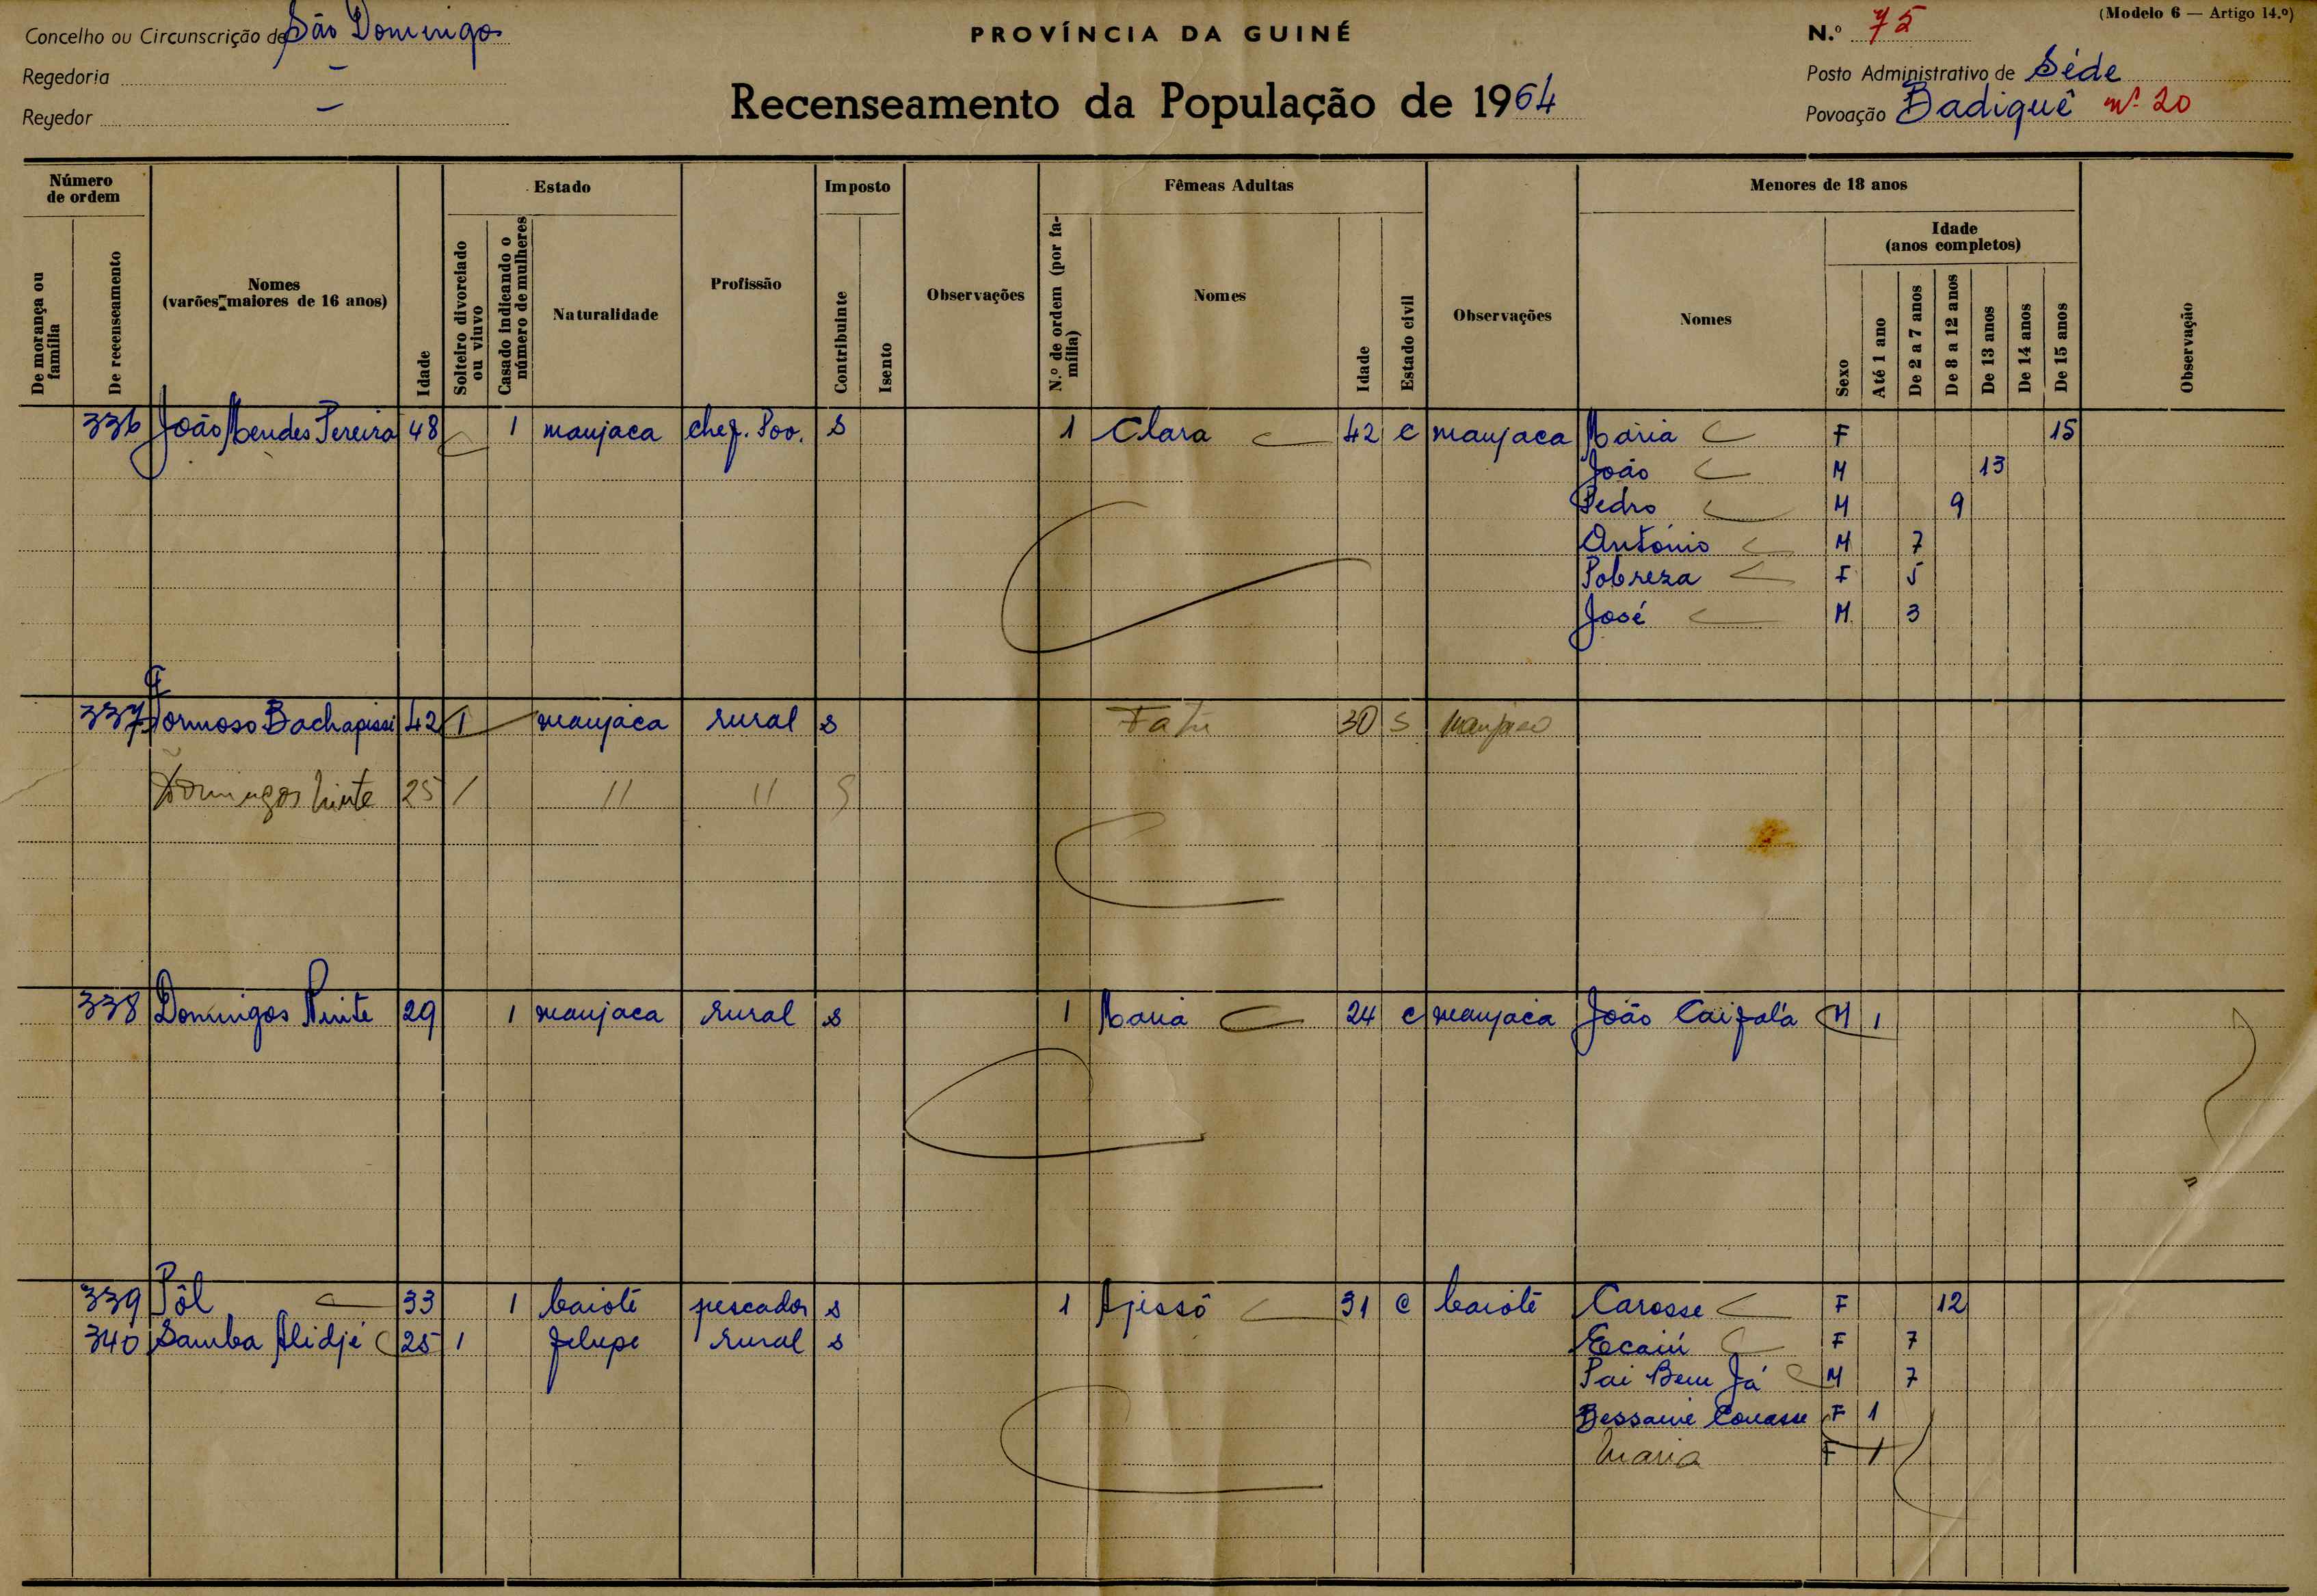 (Modelo 6 — Artigo 14.º)
Concelho ou Circunscrição de São Domingos
PROVÍNCIA DA GUINÉ
N.º 75
Regedoria —
Posto Administrativo de Séde
Recenseamento da População de 1964
Regedor —
Povoação Badiquê nº 20
Número de ordem
Estado
Imposto
Fêmeas Adultas
Menores de 18 anos
De morança ou família
De recenseamento
Nomes
(varões maiores de 16 anos)
Idade
Solteiro divorciado ou viuvo
Casado indicando o número de mulheres
Naturalidade
Profissão
Contribuinte
Isento
Observações
N.º de ordem (por família)
Nomes
Idade
Estado civil
Observações
Nomes
Sexo
Idade
(anos completos)
Até 1 ano
De 2 a 7 anos
De 8 a 12 anos
De 13 anos
De 14 anos
De 15 anos
Observação
336 João Mendes Pereira 48 1 manjaca chef. Pov. s 1 Clara 42 c manjaca Maria F 15
João M 13
Pedro M 9
António M 7
Pobreza F 5
José M 3
337 Formoso 42 1 manjaca rural s Fatu 30 S manjaco
Domingos 25 1 " " S
338 Domingos Ninte 29 1 manjaca rural s 1 Maria 24 c manjaca João Caifalá M 1
339 Pôl 33 1 baiote pescador s 1 Ajissô 31 c baiote Carosse F 12
340 Samba Alidjé 25 1 felupe rural s Ecaiú F 7
Pai Bem Já M 7
F 1
Maria F 1